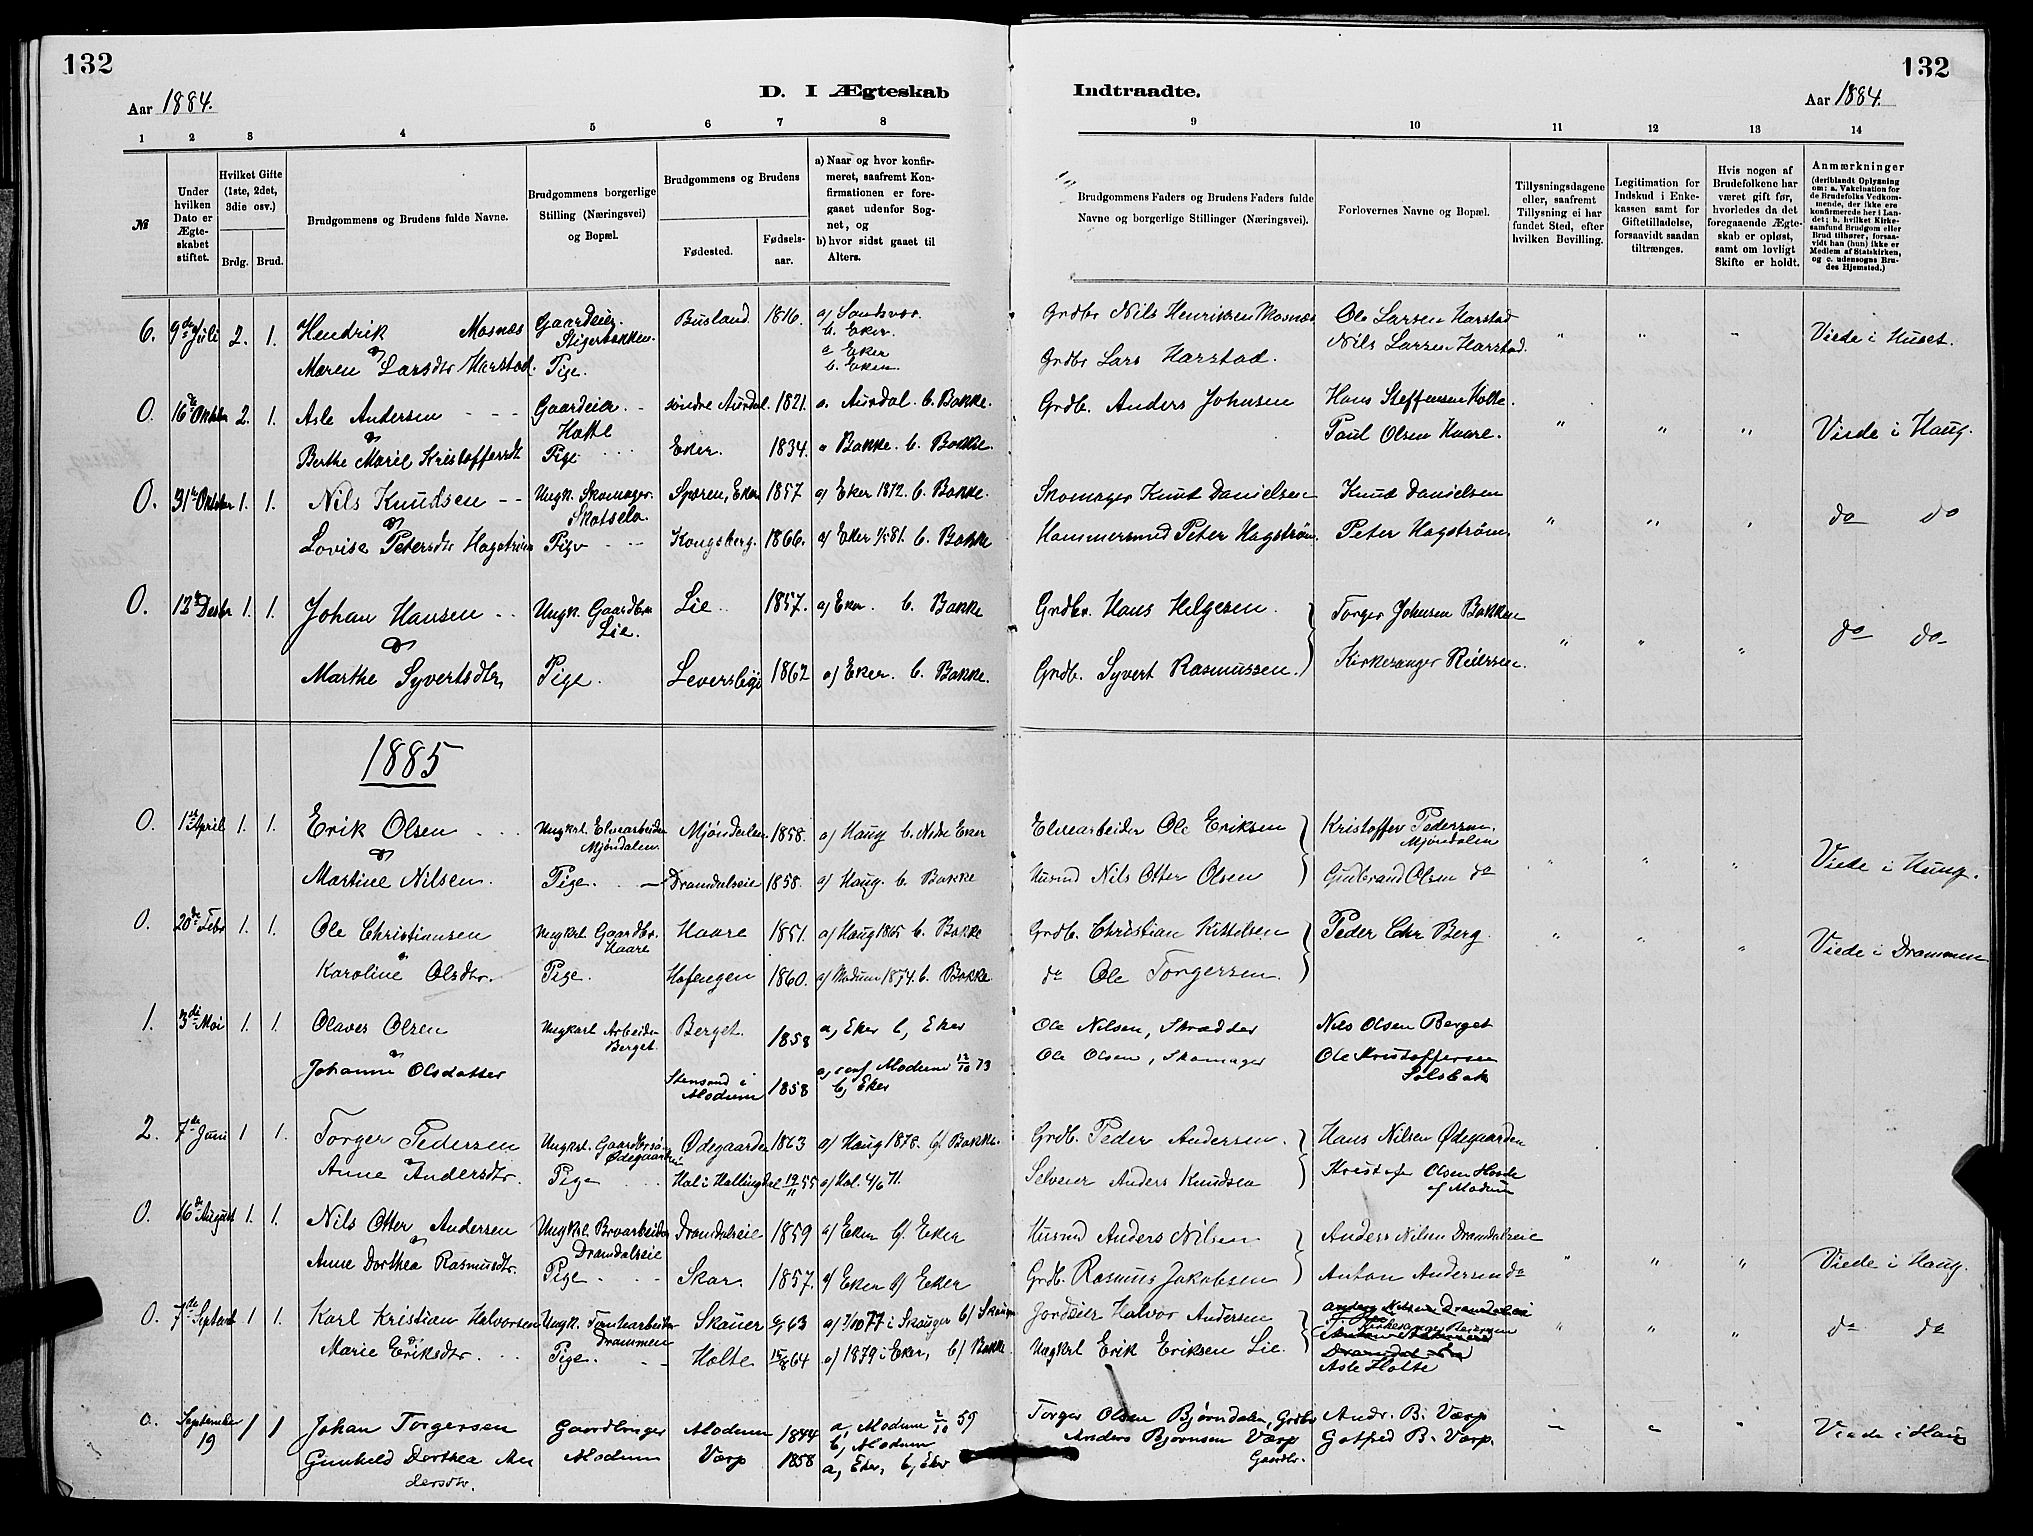 132
Aar 1884.
D. I Ægteskab
1 2 3 4 5 6 7 8
№
Under hvilken Dato er Ægteskabet stiftet.
Hvilket Gifte (1ste, 2det, 3die osv.)
Brdg. Brud.
Brudgommens og Brudens fulde Navne.
Brudgommens borgerlige Stilling (Næringsvei) og Bopæl.
Brudgommens og Brudens
Fødested. Fødsels-aar.
a) Naar og hvor konfir-
meret, saafremt Kon-
firmationen er fore-
gaaet udenfor Sog-
net, og
b) hvor sidst gaaet til
Alters.
6. 9de Juli 2. 1. Hendrik Mosnæs Gaardeier Busland 1816. a/ Sandsvær
Stigerbakken b. Eker
& a Eker
Maren Larsdtr Harstad. Pige. b. Eker.
0. 16de Oktober 2. 1. Asle Andersen Gaardeier søndre Aurdal. 1821. a. Aurdal. b. Bakke.
& Holte
Berthe Marie Kristoffersdt Pige Eker. 1834. a Bakke. b. Bakke.
0. 31te Oktober 1. 1. Nils Knudsen Ungk. Skomager Speren, Eker 1857 a/ Eker 1872. b. Bakke.
& Skotselv.
Lovise Petersdtr Hagstrøm Pige Kongsberg. 1866. a/ Eker 81. b. Bakke
0. 12te Decbr 1. 1. Johan Hansen Ungk. Gaardbr. Lie 1857. a/ Eker. b. Bakke
& Lie.
Marthe Syvertsdtr. Pige. Leversbye 1862 a/ Eker. b. Bakke.
1885
0. 1ste April 1. 1. Erik Olsen Ungkarl Elvearbeider Mjøndalen 1858. a/ Haug b. Nedre Eker
& Mjøndalen
Martine Nilsen. Pige. Dramdalseie 1858. a/ Haug. b. Bakke
0. 20de Febr 1. 1. Ole Christiansen Ungkarl Gaardbr. Haare 1851. a/ Haug 1865 b. Bakke
& Haare
Karoline Olsdtr. Pige. Hofengen 1860. a/ Modum 1874. b. Bakke
1. 3die Mai 1. 1. Olaves Olsen Ungkarl Arbeider Berget. 1858 a, Eker b, Eker
& Berget.
Johanne Olsdatter Stensrud i Modum 1858 a, Modum 12/10 73
b, Eker
2. 7de Juni 1 1. Torger Pedersen Ungkarl. Gaardbrsøn Ødegaarden 1863 a/ Haug 1878. b/ Bakke.
& Ødegaarden
Anne Andersdtr. Pige Hol i Hallingdal 19/11 55 a/ Hol. 4/6 71.
0. 16de August 1. 1. Nils Otter Andersen Ungkarl Brvarbeider Dramdalseie 1859 a/ Eker b/ Eker
& Dramdalseie
Anne Dorthea Rasmusdtr. Pige Skar. 1857. a/ Eker b/ Eker
0. 7de Septembr 1 1. Karl Kristian Halvorsen Ungk. Tomtearbeider Skauger 63 a/ 77 i Skauger b/ Skauger
& Drammen
Marie Eriksdtr. Pige. Holte 15/8 64 a/ 1879 i Eker, b/ Bakke
0. September 19 1 1 Johan Torgersen Gaardbruger Modum 1844 a, Modum 2/10 59
b, Modum
Gunhild Dorthea An Modum Varp 1858 a, Eker, b, Eker
dersdtr.
132
Indtraadte.
Aar 1884.
9 10 11 12 13 14
Brudgommens Faders og Brudens Faders fulde
Navne og borgerlige Stillinger (Næringsvei).
Forlovernes Navne og Bopæl.
Tillysningsdagene
eller, saafremt
Tillysning ei har
fundet Sted, efter
hvilken Bevilling.
Legitimation for
Indskud i Enke-
kassen samt for
Giftetilladelse,
forsaavidt saadan
tiltrænges.
Hvis nogen af
Brudefolkene har
været gift før,
hvorledes da det
foregaaende Ægte-
skab er opløst,
samt om lovligt
Skifte er holdt.
Anmærkninger
(deriblandt Oplysning
om: a. Vakcination for
de Brudefolks Vedkom-
mende, der ikke ere
konfirmerede her i Lan-
det; b. hvilket Kirke-
samfund Brudgom eller
Brud tilhører, forsaa-
vidt han (hun) ikke er
Medlem af Statskirken,
og c. udensogns Bru-
des Hjemsted.)
Grdbr Nils Henriksen Mosnæs Ole Larsen Harstad " " " Viede i Huset.
Grdbr Lars Harstad. Nils Larsen Harstad.
Grdb. Anders Johnsen Hans Steffensen Holte.
Paul Olsen Haare. " " " Viede i Haug.
Skomager Knud Danielsen Knud Danielsen
Hammersmed Peter Hagstrøm. Peter Hagstrøm " " " do do
Grdbr. Hans Helgesen. Torger Johnsen Bakken
Grdb. Syvert Rasmussen. Kirkesanger Reiersen. " " " do do
Elvearbeider Ole Eriksen Kristoffer Pedersen.
Mjøndalen
Husmd Nils Otter Olsen Gulbrand Olsen do " " " Viede i Haug.
Grdb. Christian Kittelsen Peder Chr Berg. " " " Viede i Drammen
do Ole Torgersen.
Ole Nilsen, Skrædder Nils Olsen Berget
Ole Olsen, Skomager Ole Kristoffersen
Solsbak
Grdb. Peder Andersen. Hans Nilsen Ødegaarden
Selveier Anders Knudsen Kristofer Olsen Hovde
af Modum
Husmd Anders Nilsen Anders Nilsen Dramdalseie
Grdb. Rasmus Jakobsen Anton Andersen do " " " Viede i Haug.
Jordeier Halvor Andersen Anders Nilsen Dramdalseie
Kirkesanger Reiersen
Ungkrl Erik Eriksen Lie Asle Holte " " " do do
Torger Olsen Bjørndalen, Grdbr Andr. B. Varp
Anders Bjørnsen Varp Gotfred B. Varp. " " " Viede i Haug
Gaardbr.